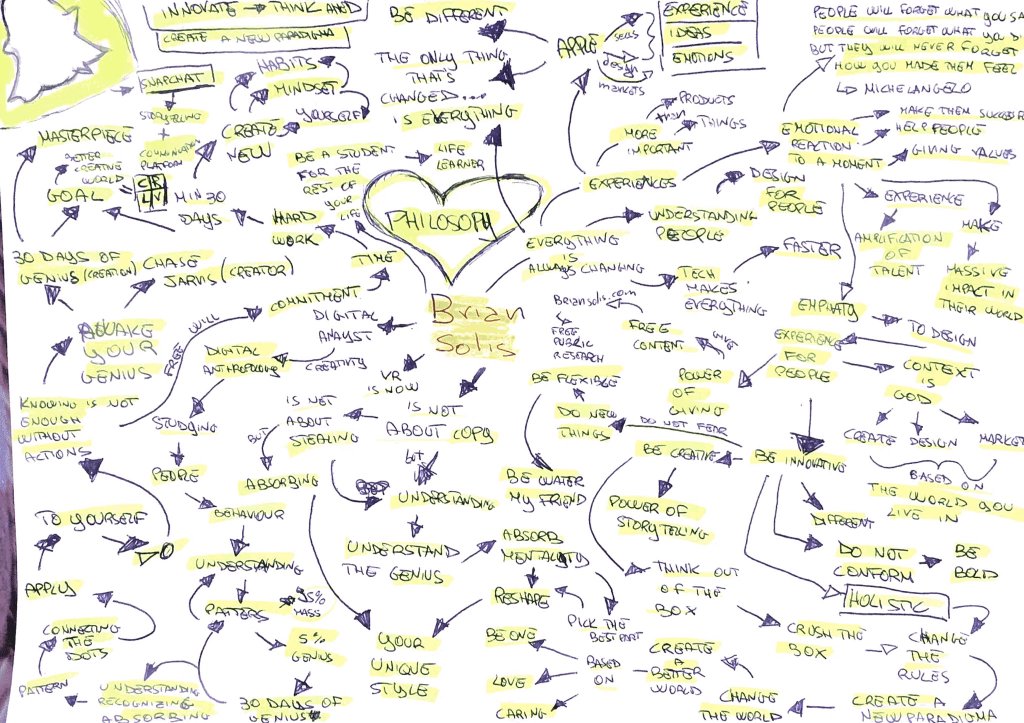 INNOVATE → THINK AHEAD
CREATE A NEW PARADIGMA
SNAPCHAT
STORYTELLING
+
PLATFORM
HABITS
MINDSET
YOURSELF
CREATE
NEW
MASTERPIECE
BETTER
CREATIVE
WORLD
GOAL =
MIN 30
DAYS
HARD
WORK
30 DAYS OF
GENIUS (CREATION)
CHASE
JARVIS (CREATOR)
AWAKE
YOUR
GENIUS
KNOWING IS NOT
ENOUGH
WITHOUT
ACTIONS
FREE WILL
COMMITMENT
TIME
BE A STUDENT
FOR THE
REST OF
YOUR
LIFE
LIFE
LEARNER
BE DIFFERENT
THE ONLY THING
THAT'S
CHANGED...
IS EVERYTHING
PHILOSOPY
Brian
Solis
APPLE
SELLS
DESIGN
MARKETS
EXPERIENCE
IDEAS
EMOTIONS
PEOPLE WILL FORGET WHAT YOU SA
PEOPLE WILL FORGET WHAT YOU DI
BUT THEY WILL NEVER FORGET
HOW YOU MADE THEM FEEL
MICHELANGELO
EXPERIENCES
MORE
IMPORTANT
THAN
PRODUCTS
THINGS
EMOTIONAL
REACTION
TO A MOMENT
MAKE THEM SUCCEED
HELP PEOPLE
GIVING VALUES
DESIGN
FOR
PEOPLE
UNDERSTANDING
PEOPLE
EVERYTHING
IS
ALWAYS CHANGING
TECH
MAKES
EVERYTHING
FASTER
EXPERIENCE
AMPLIFICATION
OF
TALENT
MAKE
MASSIVE
IMPACT IN
THEIR WORLD
EMPHATY
EXPERIENCE
FOR
PEOPLE
TO DESIGN
CONTEXT
IS
GOD
CREATE
DESIGN
MARKET
BASED ON
THE WORLD YOU
LIVE IN
POWER
OF
GIVING
GIVE
FREE
CONTENT
Briansolis.com
FREE
PUBLIC
RESEARCH
DIGITAL
ANALYST
CREATIVITY
DIGITAL
ANTHROPOLOGY
STUDYING
PEOPLE
BEHAVIOUR
UNDERSTANDING
PATTERS
95%
MASS
5%
GENIUS
30 DAYS OF
GENIUS
UNDERSTANDING
RECOGNIZING
ABSORBING
PATTERN
CONNECTING
THE
DOTS
APPLY
TO YOURSELF
VR
IS NOW
IS NOT
ABOUT COPY
IS NOT
ABOUT
STEALING
BUT
ABSORBING
but
UNDERSTANDING
UNDERSTAND
THE GENIUS
ABSORB
MENTALITY
PICK THE
BEST PART
RESHAPE
YOUR
UNIQUE
STYLE
BE INNOVATIVE
BE CREATIVE
DO NOT FEAR
DO NEW
THINGS
BE FLEXIBLE
BE WATER
MY FRIEND
POWER OF
STORYTELLING
THINK OUT
OF THE
BOX
DIFFERENT
DO NOT
CONFORM
BE
BOLD
HOLISTIC
CRUSH THE
BOX
CHANGE
THE
RULES
CREATE A
NEW PARADIGMA
CHANGE
THE WORLD
CREATE
A
BETTER
WORLD
BASED
ON
BE ONE
LOVE
CARING